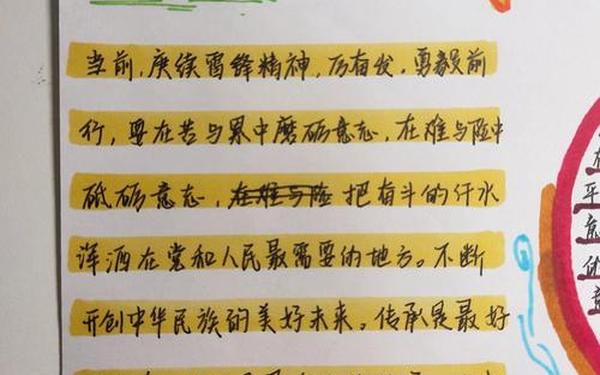 当前,庚续雷锋精神,历奋发,勇毅前
行,要在苦与累中磨砺意志,在难与险中
砥砺意志,在难与险 把奋斗的汗水
浑洒在党和人民最需要的地方。不断
开创中华民族的美好未来。传承是最好